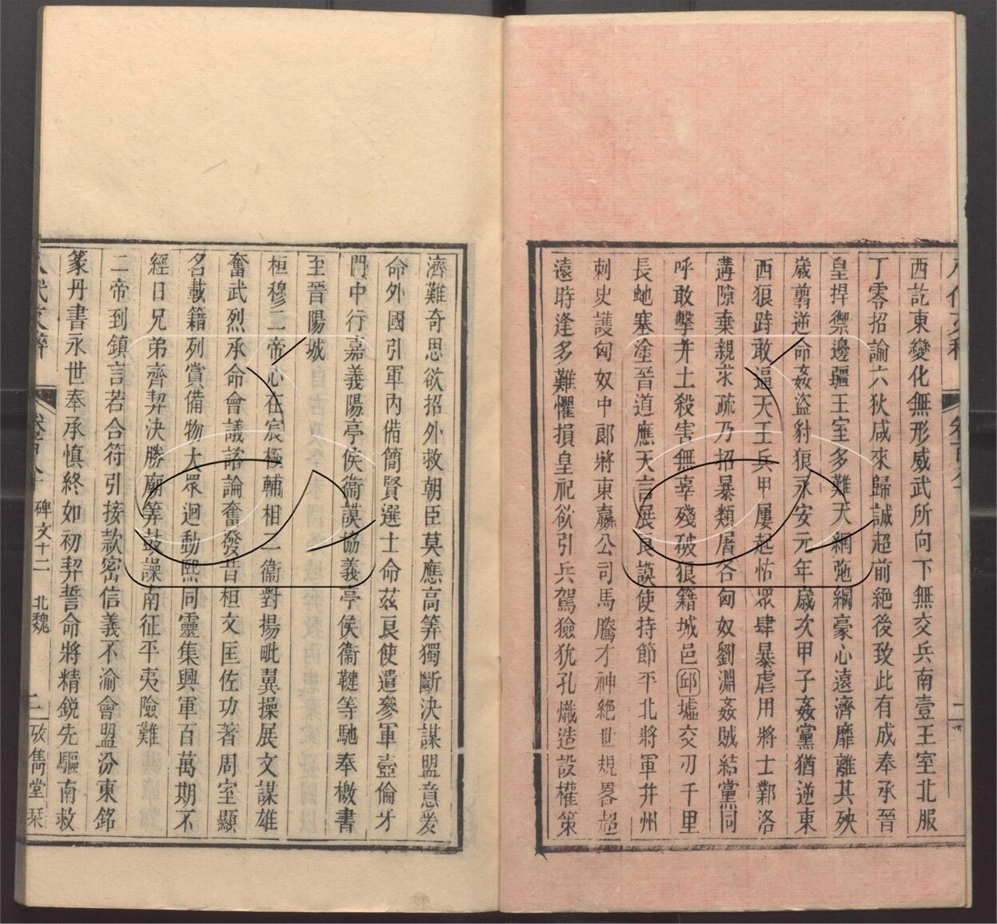 西訖東變化無形威武所向下無交兵南壹王室北服
丁零招諭六狄咸來歸誠超前絕後致此有成奉承晉
皇捍禦邊疆王室多難天網弛綱豪心遠濟靡離其殃
歲剪逆命姦盜豺狼永安元年歲次甲子姦黨猶逆東
西狼跱敢逼天王兵甲屢起怙眾肆暴虐用將士鄴洛
溝隙棄親求疏乃招暴類屠各匈奴劉淵姦賊結黨同
呼敢擊并土殺害無辜殘破狼籍城邑邱墟交刃千里
長虵塞塗晉道應天言展良謨使持節平北將軍并州
刺史護匈奴中郎將東嬴公司馬騰才神絕世規畧超
遠時逢多難懼損皇祀欲引兵駕獫狁孔熾造設權策
濟難奇思欲招外救朝臣莫應高筭獨斷決謀盟意爰
命外國引軍內備簡賢選士命茲良使遣參軍壺倫牙
門中行嘉義陽亭侯衞謨協義亭侯衞鞬等馳奉檄書
至晉陽城
桓穆二帝心在宸極輔相二衞對揚毗翼操展文謀雄
奮武烈承命會議諮論奮發昔桓文匡佐功著周室顯
名載籍列賞備物大眾迴動熙同靈集興軍百萬期不
經日兄弟齊契決勝廟筭鼓譟南征平夷險難
二帝到鎮言若合符引接款密信義不渝會盟汾東銘
篆丹書永世奉承慎終如初契誓命將精銳先驅南救
碑文十二 北魏 二 攷雋堂栞